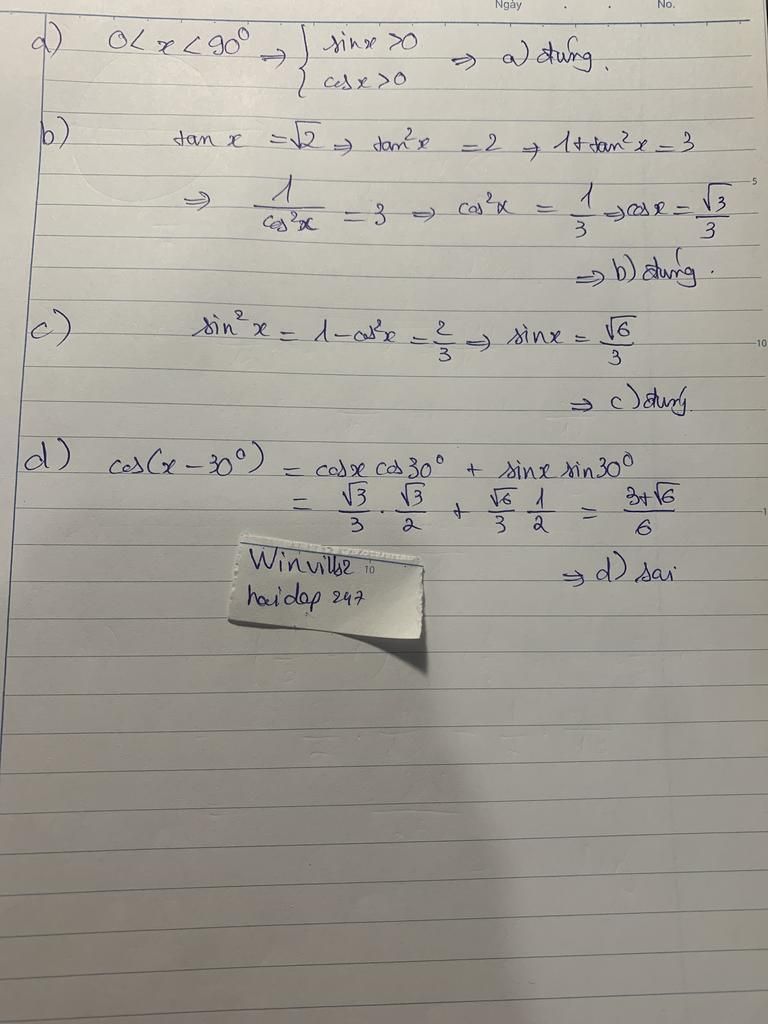 Ngày . . No.
a) 0 < x < 90⁰ ⇒ { sinx > 0
cosx > 0 ⇒ a) đúng.
b) tan x = √2 ⇒ tan²x = 2 ⇒ 1 + tan²x = 3
5
⇒ 1/cos²x = 3 ⇒ cos²x = 1/3 ⇒ cosx = √3/3
⇒ b) đúng.
c) sin²x = 1 - cos²x = 2/3 ⇒ sinx = √6/3
10
⇒ c) đúng
d) cos(x - 30⁰) = cosx cos30⁰ + sinx sin30⁰
= √3/3 . √3/2 + √6/3 1/2 = 3+√6/6
1
⇒ d) sai
10
hoidap 247